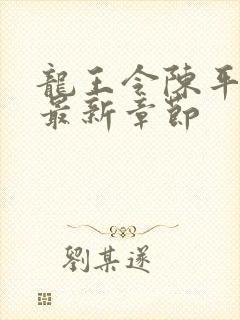 龍王令陳平
最新章節
劉某遂